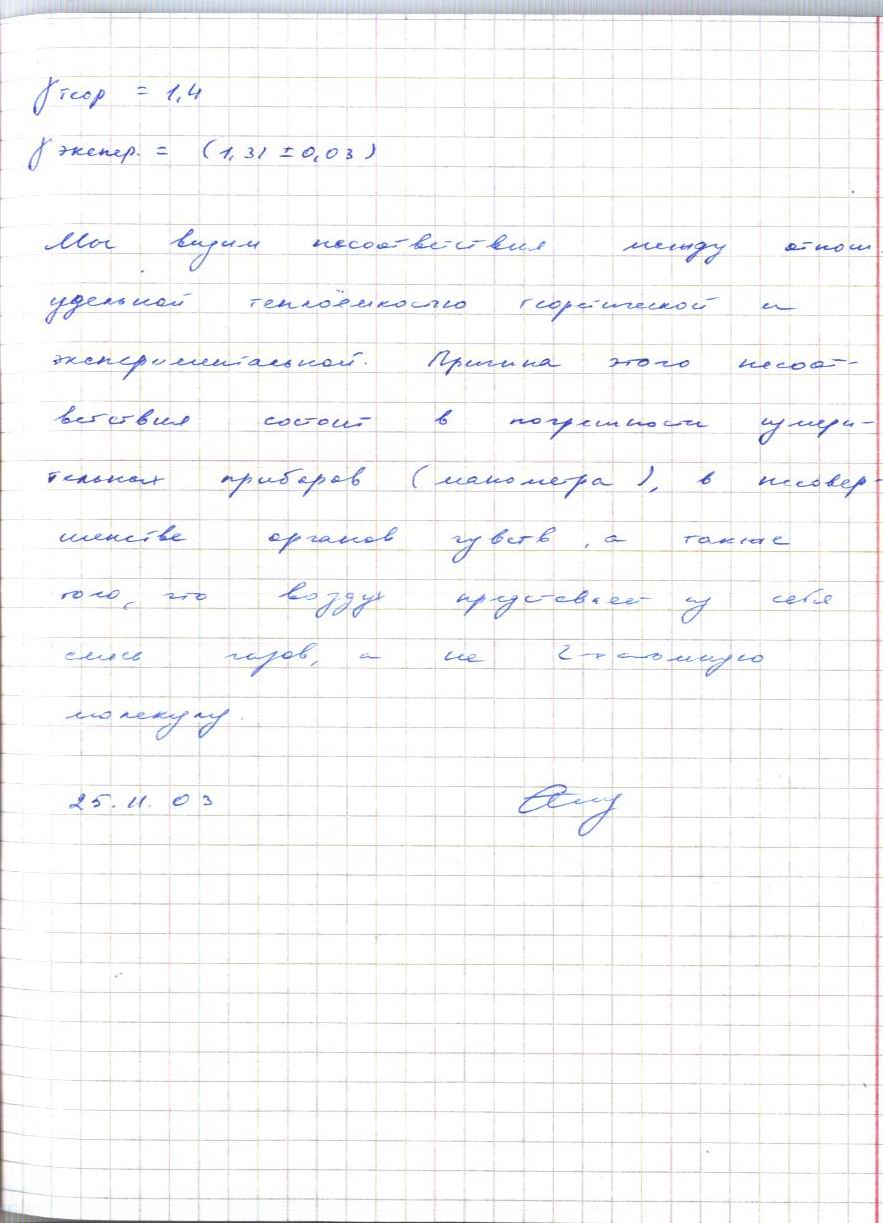 γ теор = 1,4
γ экспер. = (1,31 ± 0,03)
Мы видим несоответствия между отнош.
удельной теплоёмкостью теоретической и
экспериментальной. Причина этого несоот-
ветствия состоит в погрешности измери-
тельных приборов (манометра), в несовер-
шенстве органов чувств, а также
того, что воздух представляет из себя
смесь газов, а не 2-х атомную
молекулу.
25.11.03